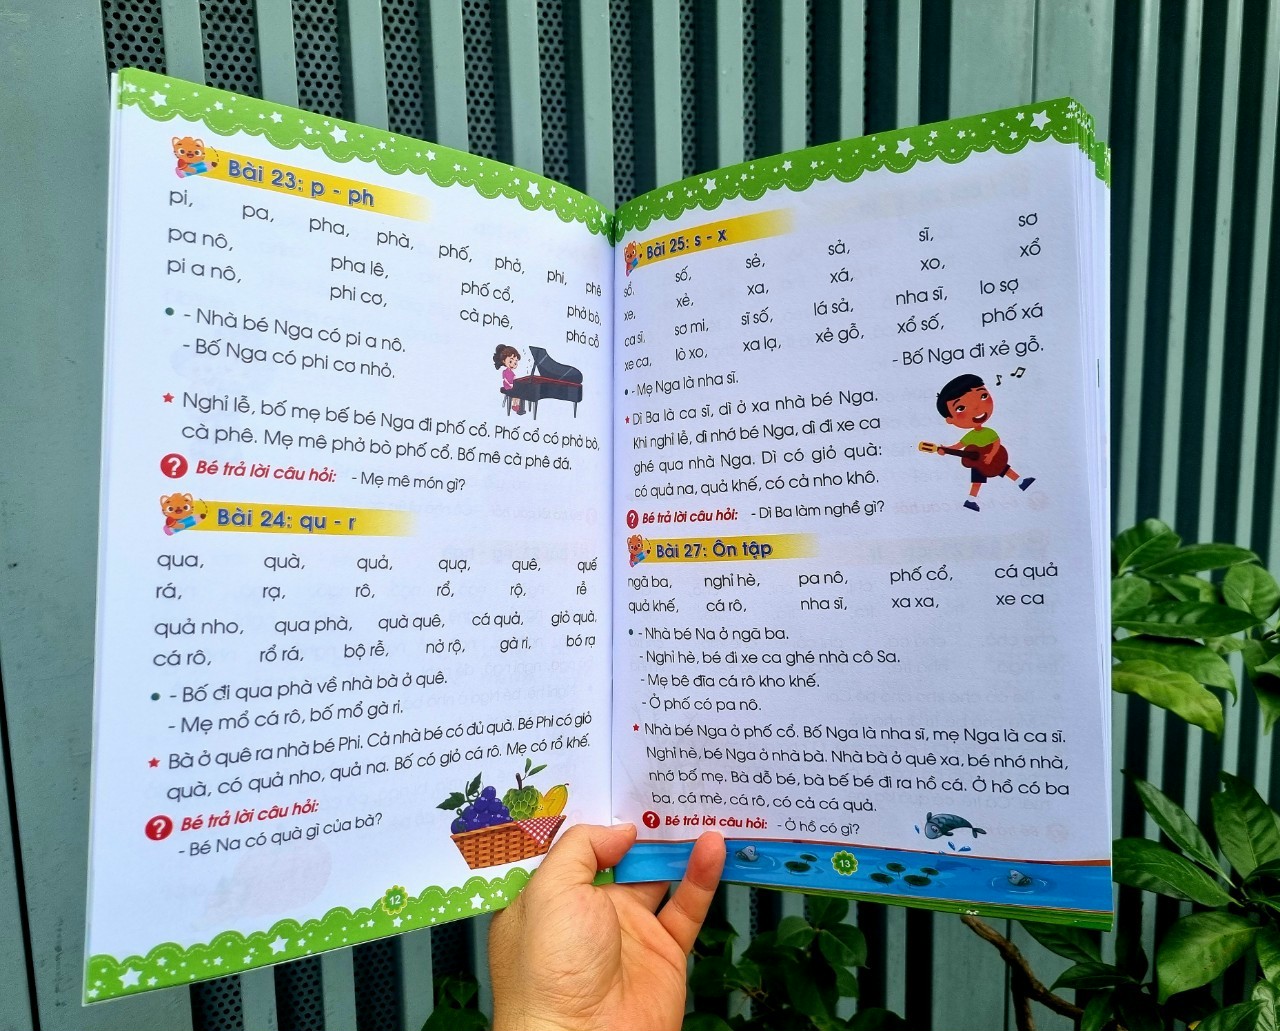 Bài 23: p - ph
pi, pa, pha, phà, phố, phở, phi, phê
pa nô, pha lê, phố cổ, phở bò,
pi a nô, phi cơ, cà phê, phá cỗ
- Nhà bé Nga có pi a nô.
- Bố Nga có phi cơ nhỏ.
Nghỉ lễ, bố mẹ bế bé Nga đi phố cổ. Phố cổ có phở bò,
cà phê. Mẹ mê phở bò phố cổ. Bố mê cà phê đá.
? Bé trả lời câu hỏi: - Mẹ mê món gì?
Bài 24: qu - r
qua, quà, quả, quạ, quê, quế
rá, rạ, rô, rổ, rộ, rễ
quả nho, qua phà, quà quê, cá quả, giỏ quà,
cá rô, rổ rá, bộ rễ, nở rộ, gà ri, bó rạ
- Bố đi qua phà về nhà bà ở quê.
- Mẹ mổ cá rô, bố mổ gà ri.
Bà ở quê ra nhà bé Phi. Cả nhà bé có đủ quà. Bé Phi có giỏ
quà, có quả nho, quả na. Bố có giỏ cá rô. Mẹ có rổ khế.
? Bé trả lời câu hỏi:
- Bé Na có quà gì của bà?
12
Bài 25: s - x
sổ, số, sẻ, sả, sĩ, sơ
xe, xẻ, xa, xá, xo, xổ
ca sĩ, sơ mi, sĩ số, lá sả, nha sĩ, lo sợ
xe ca, lò xo, xa lạ, xẻ gỗ, xổ số, phố xá
- Mẹ Nga là nha sĩ. - Bố Nga đi xẻ gỗ.
Dì Ba là ca sĩ, dì ở xa nhà bé Nga.
Khi nghỉ lễ, dì nhớ bé Nga, dì đi xe ca
ghé qua nhà Nga. Dì có giỏ quà:
có quả na, quả khế, có cả nho khô.
? Bé trả lời câu hỏi: - Dì Ba làm nghề gì?
Bài 27: Ôn tập
ngã ba, nghỉ hè, pa nô, phố cổ, cá quả
quả khế, cá rô, nha sĩ, xa xa, xe ca
- Nhà bé Na ở ngã ba.
- Nghỉ hè, bé đi xe ca ghé nhà cô Sa.
- Mẹ bê đĩa cá rô kho khế.
- Ở phố có pa nô.
Nhà bé Nga ở phố cổ. Bố Nga là nha sĩ, mẹ Nga là ca sĩ.
Nghỉ hè, bé Nga ở nhà bà. Nhà bà ở quê xa, bé nhớ nhà,
nhớ bố mẹ. Bà dỗ bé, bà bế bé đi ra hồ cá. Ở hồ có ba
ba, cá mè, cá rô, có cả cá quả.
? Bé trả lời câu hỏi: - Ở hồ có gì?
13